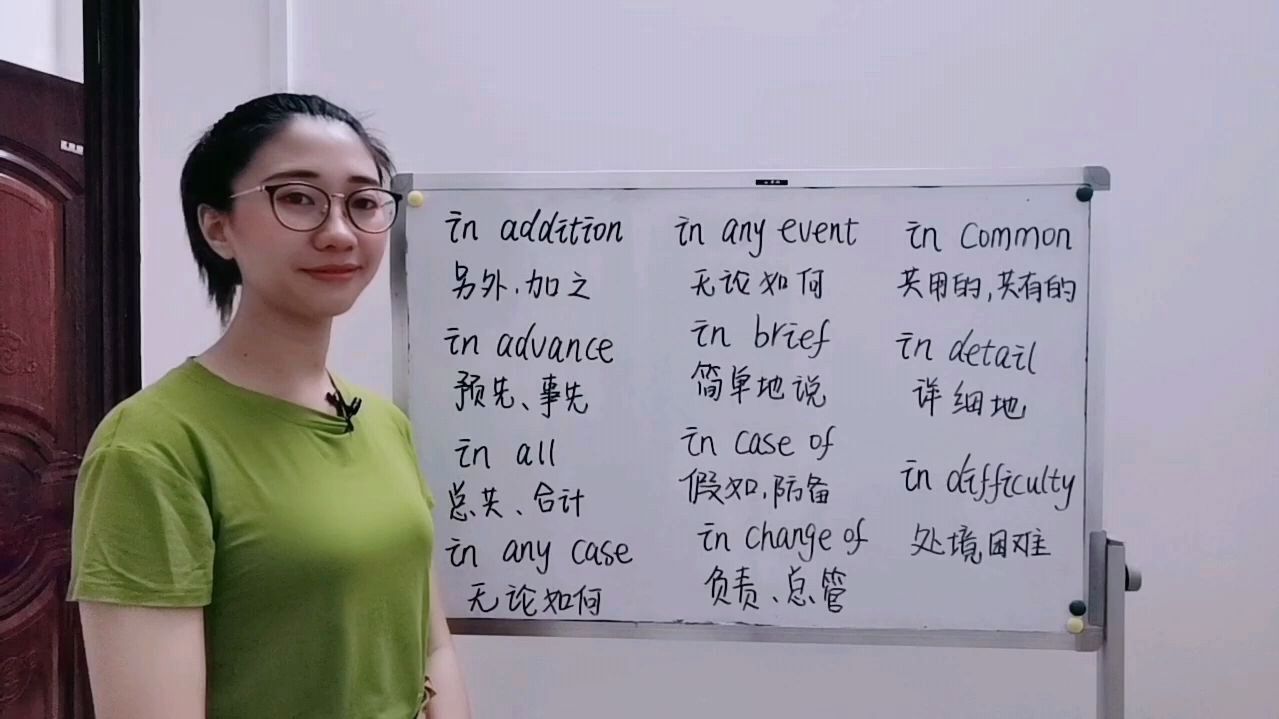 in addition
另外,加之
in advance
预先、事先
in all
总共、合计
in any case
无论如何
in any event
无论如何
in brief
简单地说
in case of
假如,防备
in change of
负责、总管
in common
共用的,共有的
in detail
详细地
in difficulty
处境困难